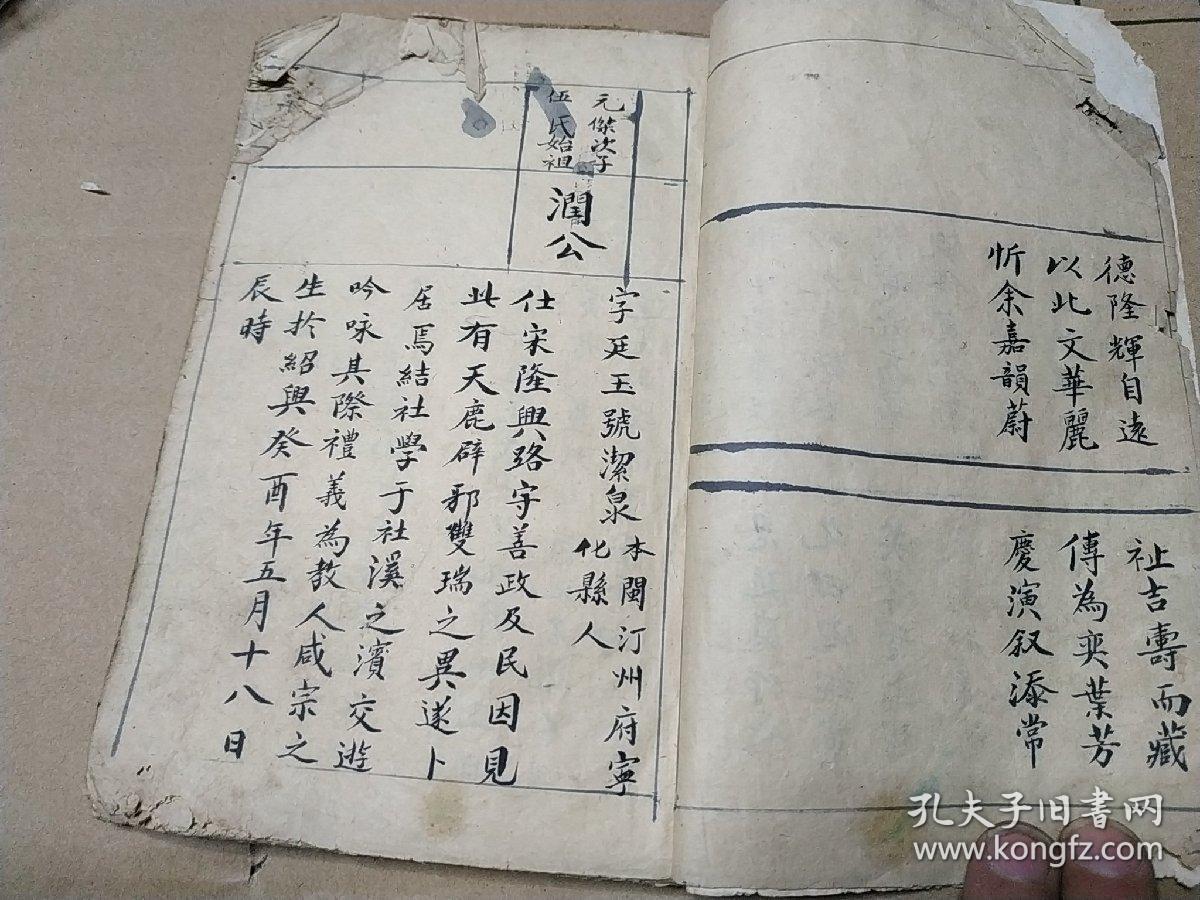 德隆輝自遠
以此文華麗
忻余嘉韻蔚
祉吉壽而藏
傳為奕葉芳
慶演叙添常
元傑次子
伍氏始祖
潤公
字廷玉號潔泉本閩汀州府寧
化縣人
仕宋隆興路守善政及民因見
此有天鹿辟邪雙瑞之異遂卜
居焉結社學于社溪之濱交遊
吟咏其際禮義為教人咸宗之
生於紹興癸酉年五月十八日
辰時
孔夫子旧书网
www.kongfz.com